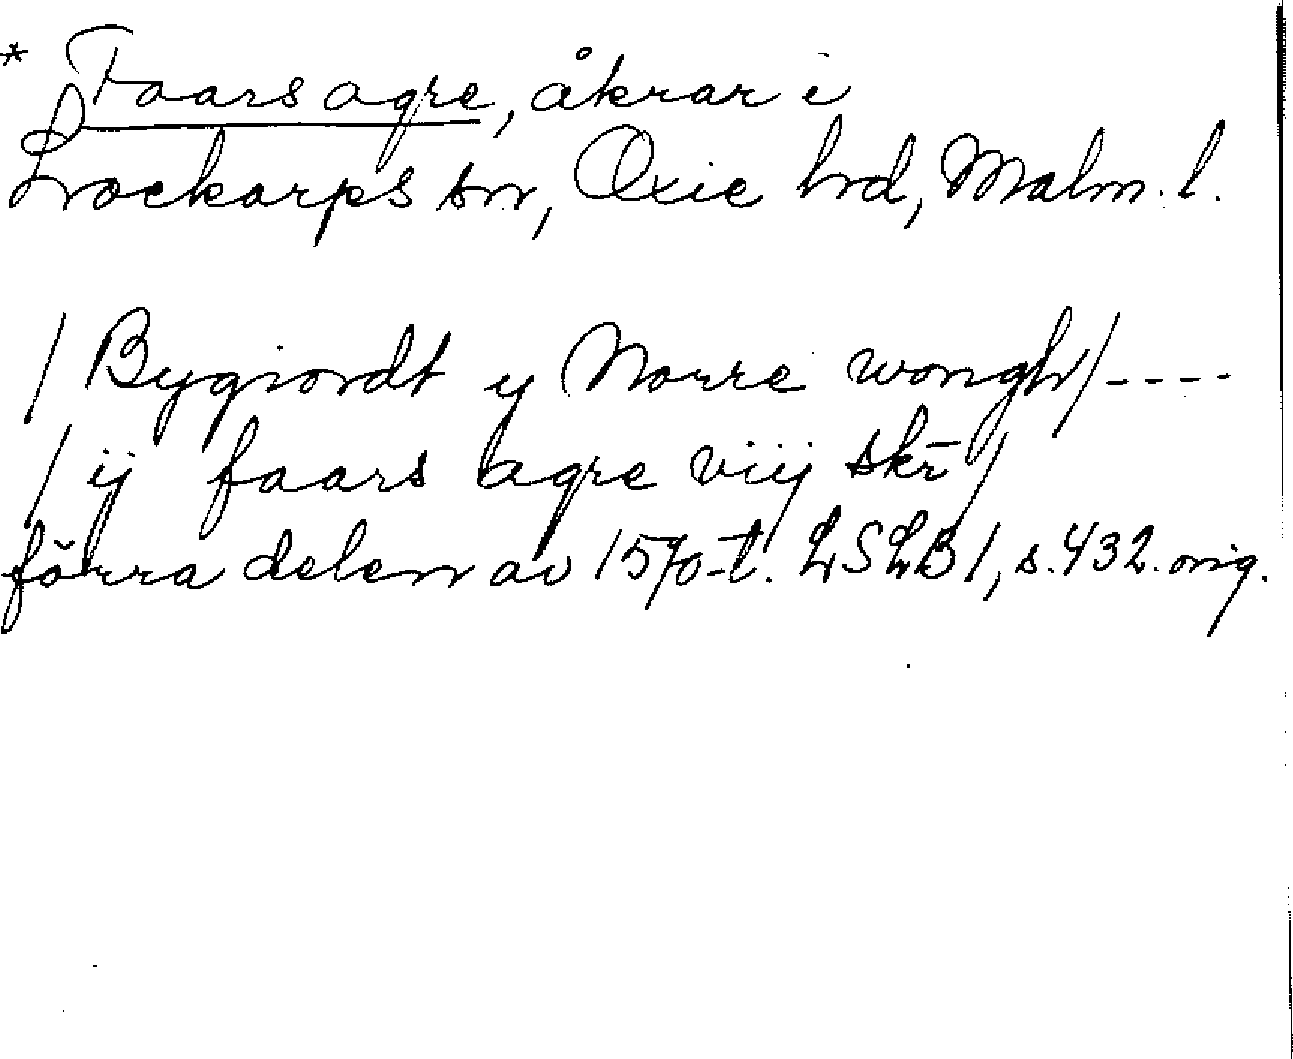 * Faars agre, åkrar i
Lockarps sn, Oxie hd, Malm. l.
/ Bygiordt y Norre wongh / ----
/ ij faars agre viij skr̄ /
förra delen av 1570-t. LSLB 1, s. 432. orig.